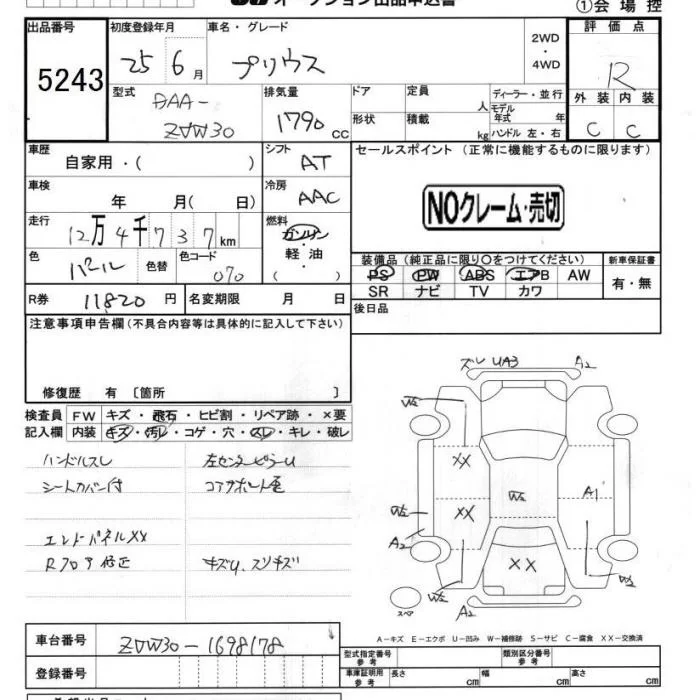 オークション出品申込書
①会場控
出品番号 初度登録年月 車名・グレード 2WD・4WD 評価点
5243 25 6月 プリウス R
型式 排気量 ドア 定員 人 ディーラー・並行 外装 内装
DAA-ZVW30 1790 cc 形状 積載 kg モデル年式 年 ハンドル 左・右 C C
車歴 自家用・( ) シフト AT セールスポイント (正常に機能するものに限ります)
車検 年 月( 日) 冷房 AAC NOクレーム・売切
走行 12万4千737km 燃料 ガソリン・軽油・( )
色 パール 色替 色コード 070
装備品 (純正品に限り○をつけてください) 新車保証書
PS PW ABS エアB AW 有・無
SR ナビ TV カワ
R券 11820円 名変期限 月 日 後日品
注意事項申告欄 (不具合内容等は具体的に記入して下さい)
修復歴 有 〔箇所 〕
検査員 FW キズ・飛石・ヒビ割・リペア跡・×要
記入欄 内装 キズ・汚レ・コゲ・穴・スレ・キレ・破レ
ハンドルスレ 左センターピラーU
シートカバー付 コアサポート
エンドパネルXX
Rフロア修正 キズU、スリキズ
ズレ UA3 A2
W2
XX
W2 A1
W2 XX
A2
XX
W2 W2
スペア A2
A-キズ E-エクボ U-凹み W-補修跡 S-サビ C-腐食 XX-交換済
車台番号 ZVW30-1698178
登録番号
型式指定番号 参考 類別区分番号 参考
車庫証明用 参考 長さ cm 幅 cm 高さ cm